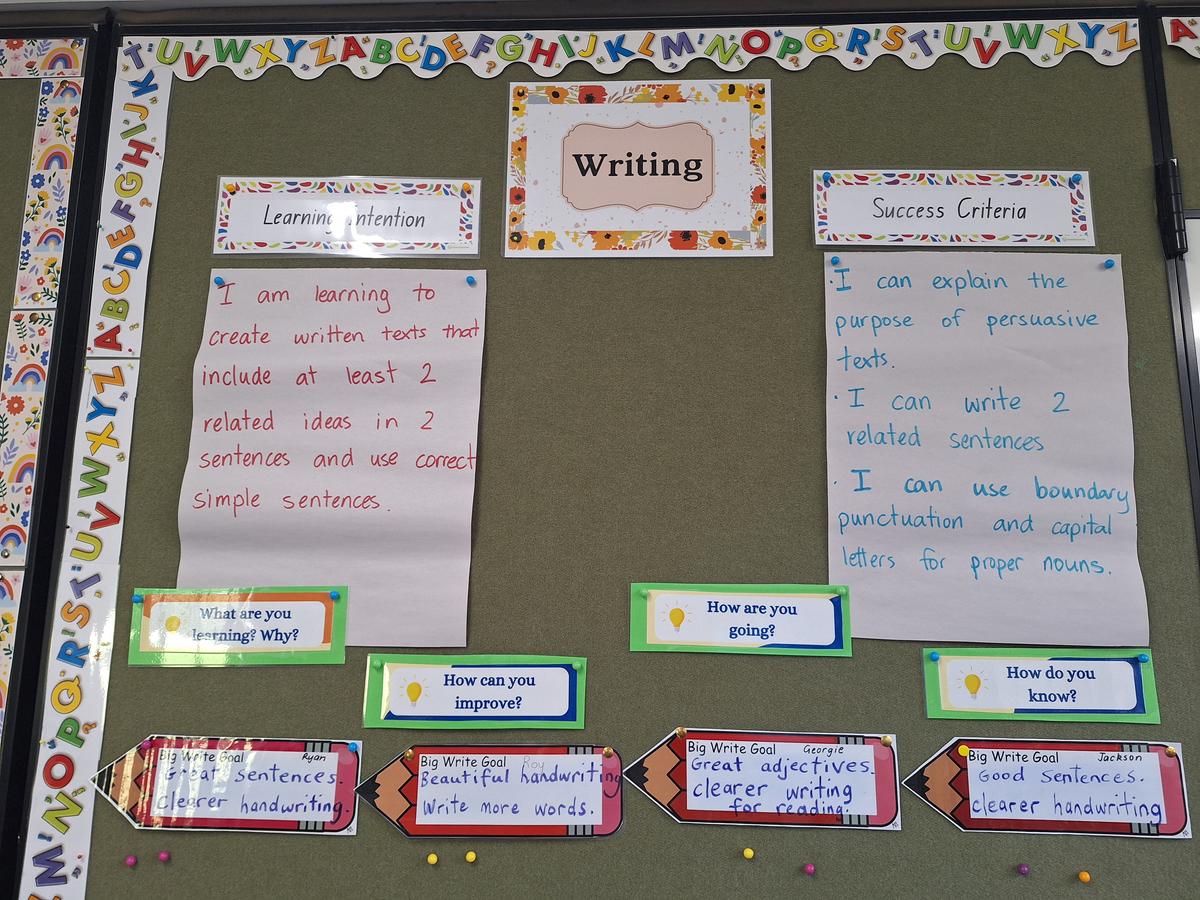 T U V W X Y Z A B C D E F G H I J K L M N O P Q R S T U V W X Y Z
A
A B C D E F G H I J K
M N O P Q R S T U V W X Y Z
Writing
Learning Intention
I am learning to
create written texts that
include at least 2
related ideas in 2
sentences and use correct
simple sentences.
Success Criteria
·I can explain the
purpose of persuasive
texts.
·I can write 2
related sentences
·I can use boundary
punctuation and capital
letters for proper nouns.
What are you
learning? Why?
How can you
improve?
How are you
going?
How do you
know?
Big Write Goal Ryan
Great sentences.
Clearer handwriting.
Big Write Goal Roy
Beautiful handwriting
Write more words.
Big Write Goal Georgie
Great adjectives.
clearer writing
for reading.
Big Write Goal Jackson
Good Sentences.
clearer handwriting